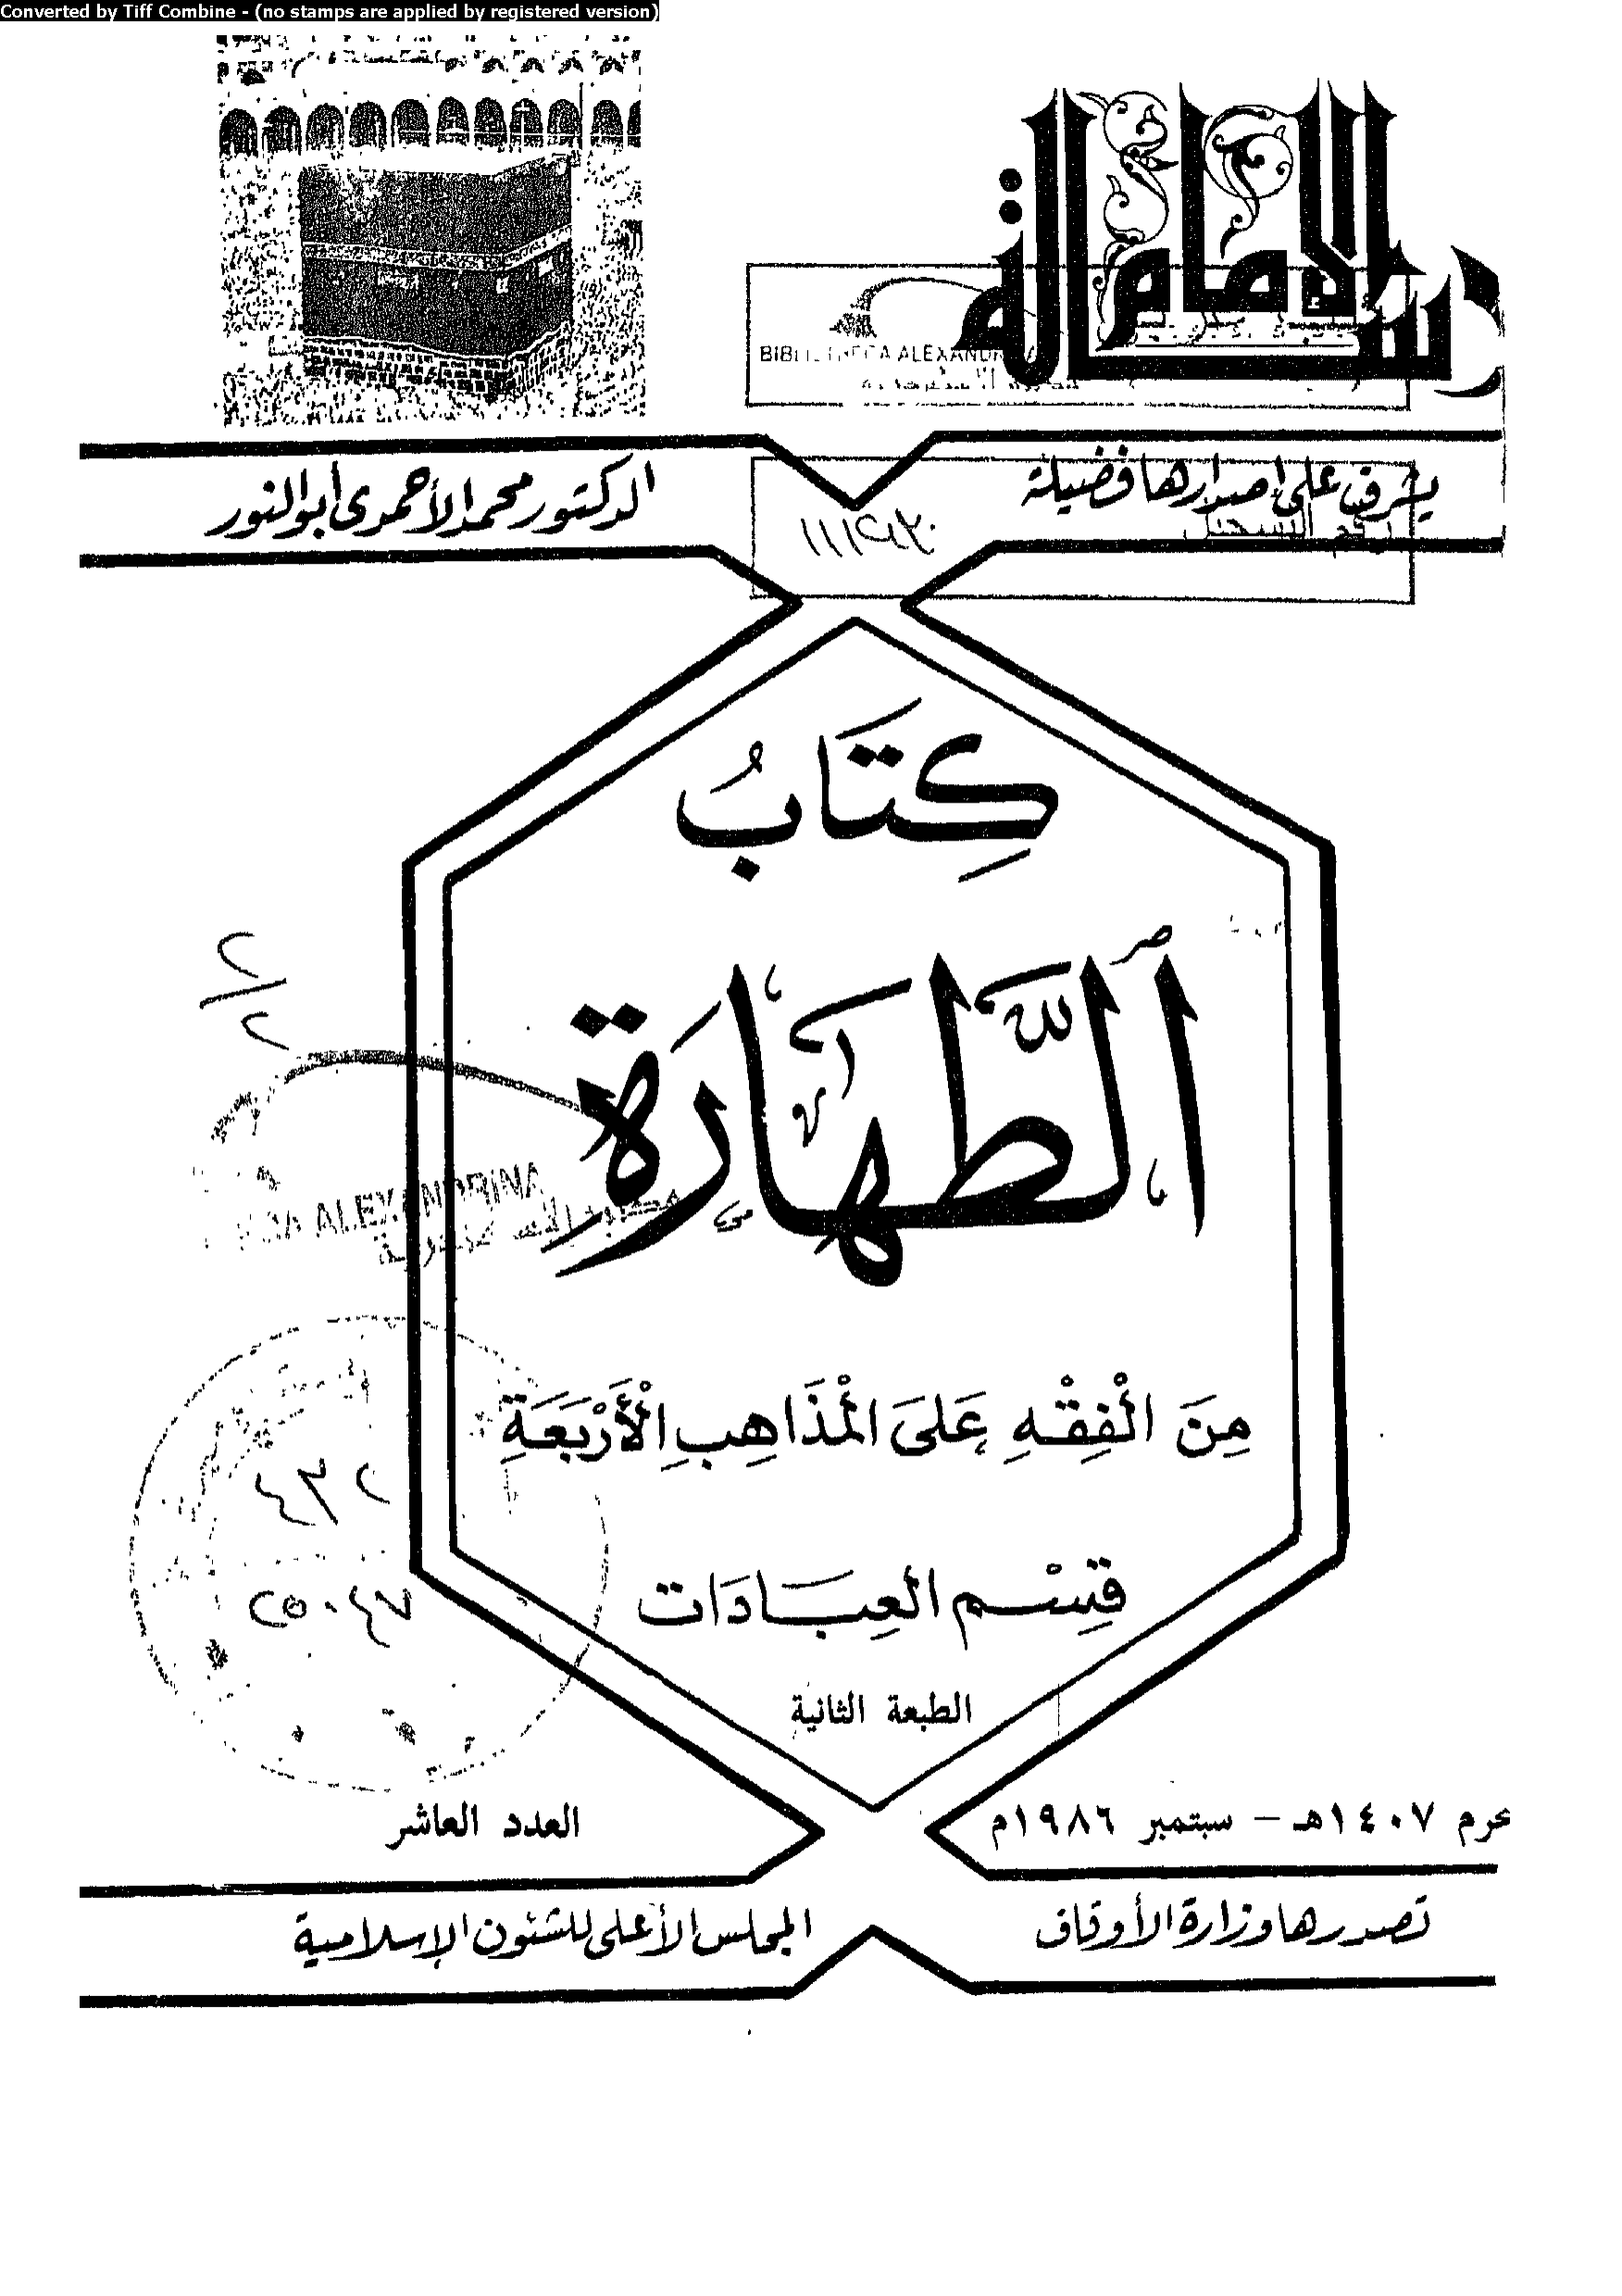 Converted by Tiff Combine - (no stamps are applied by registered version)
رسالة الإمام
BIBLIOTHECA ALEXANDRINA
يشرف على إصدارها فضيلة
الدكتور محمد الأحمدى أبو النور
رقم التسجيل
كِتَابُ
ٱلطَّهَارَةِ
مِنَ الْفِقْهِ عَلَى الْمَذَاهِبِ الْأَرْبَعَةِ
قِسْم العِبَادَات
الطبعة الثانية
ALEXANDRINA
محرم ١٤٠٧هـ - سبتمبر ١٩٨٦م
العدد العاشر
تصدرها وزارة الأوقاف
المجلس الأعلى للشئون الإسلامية